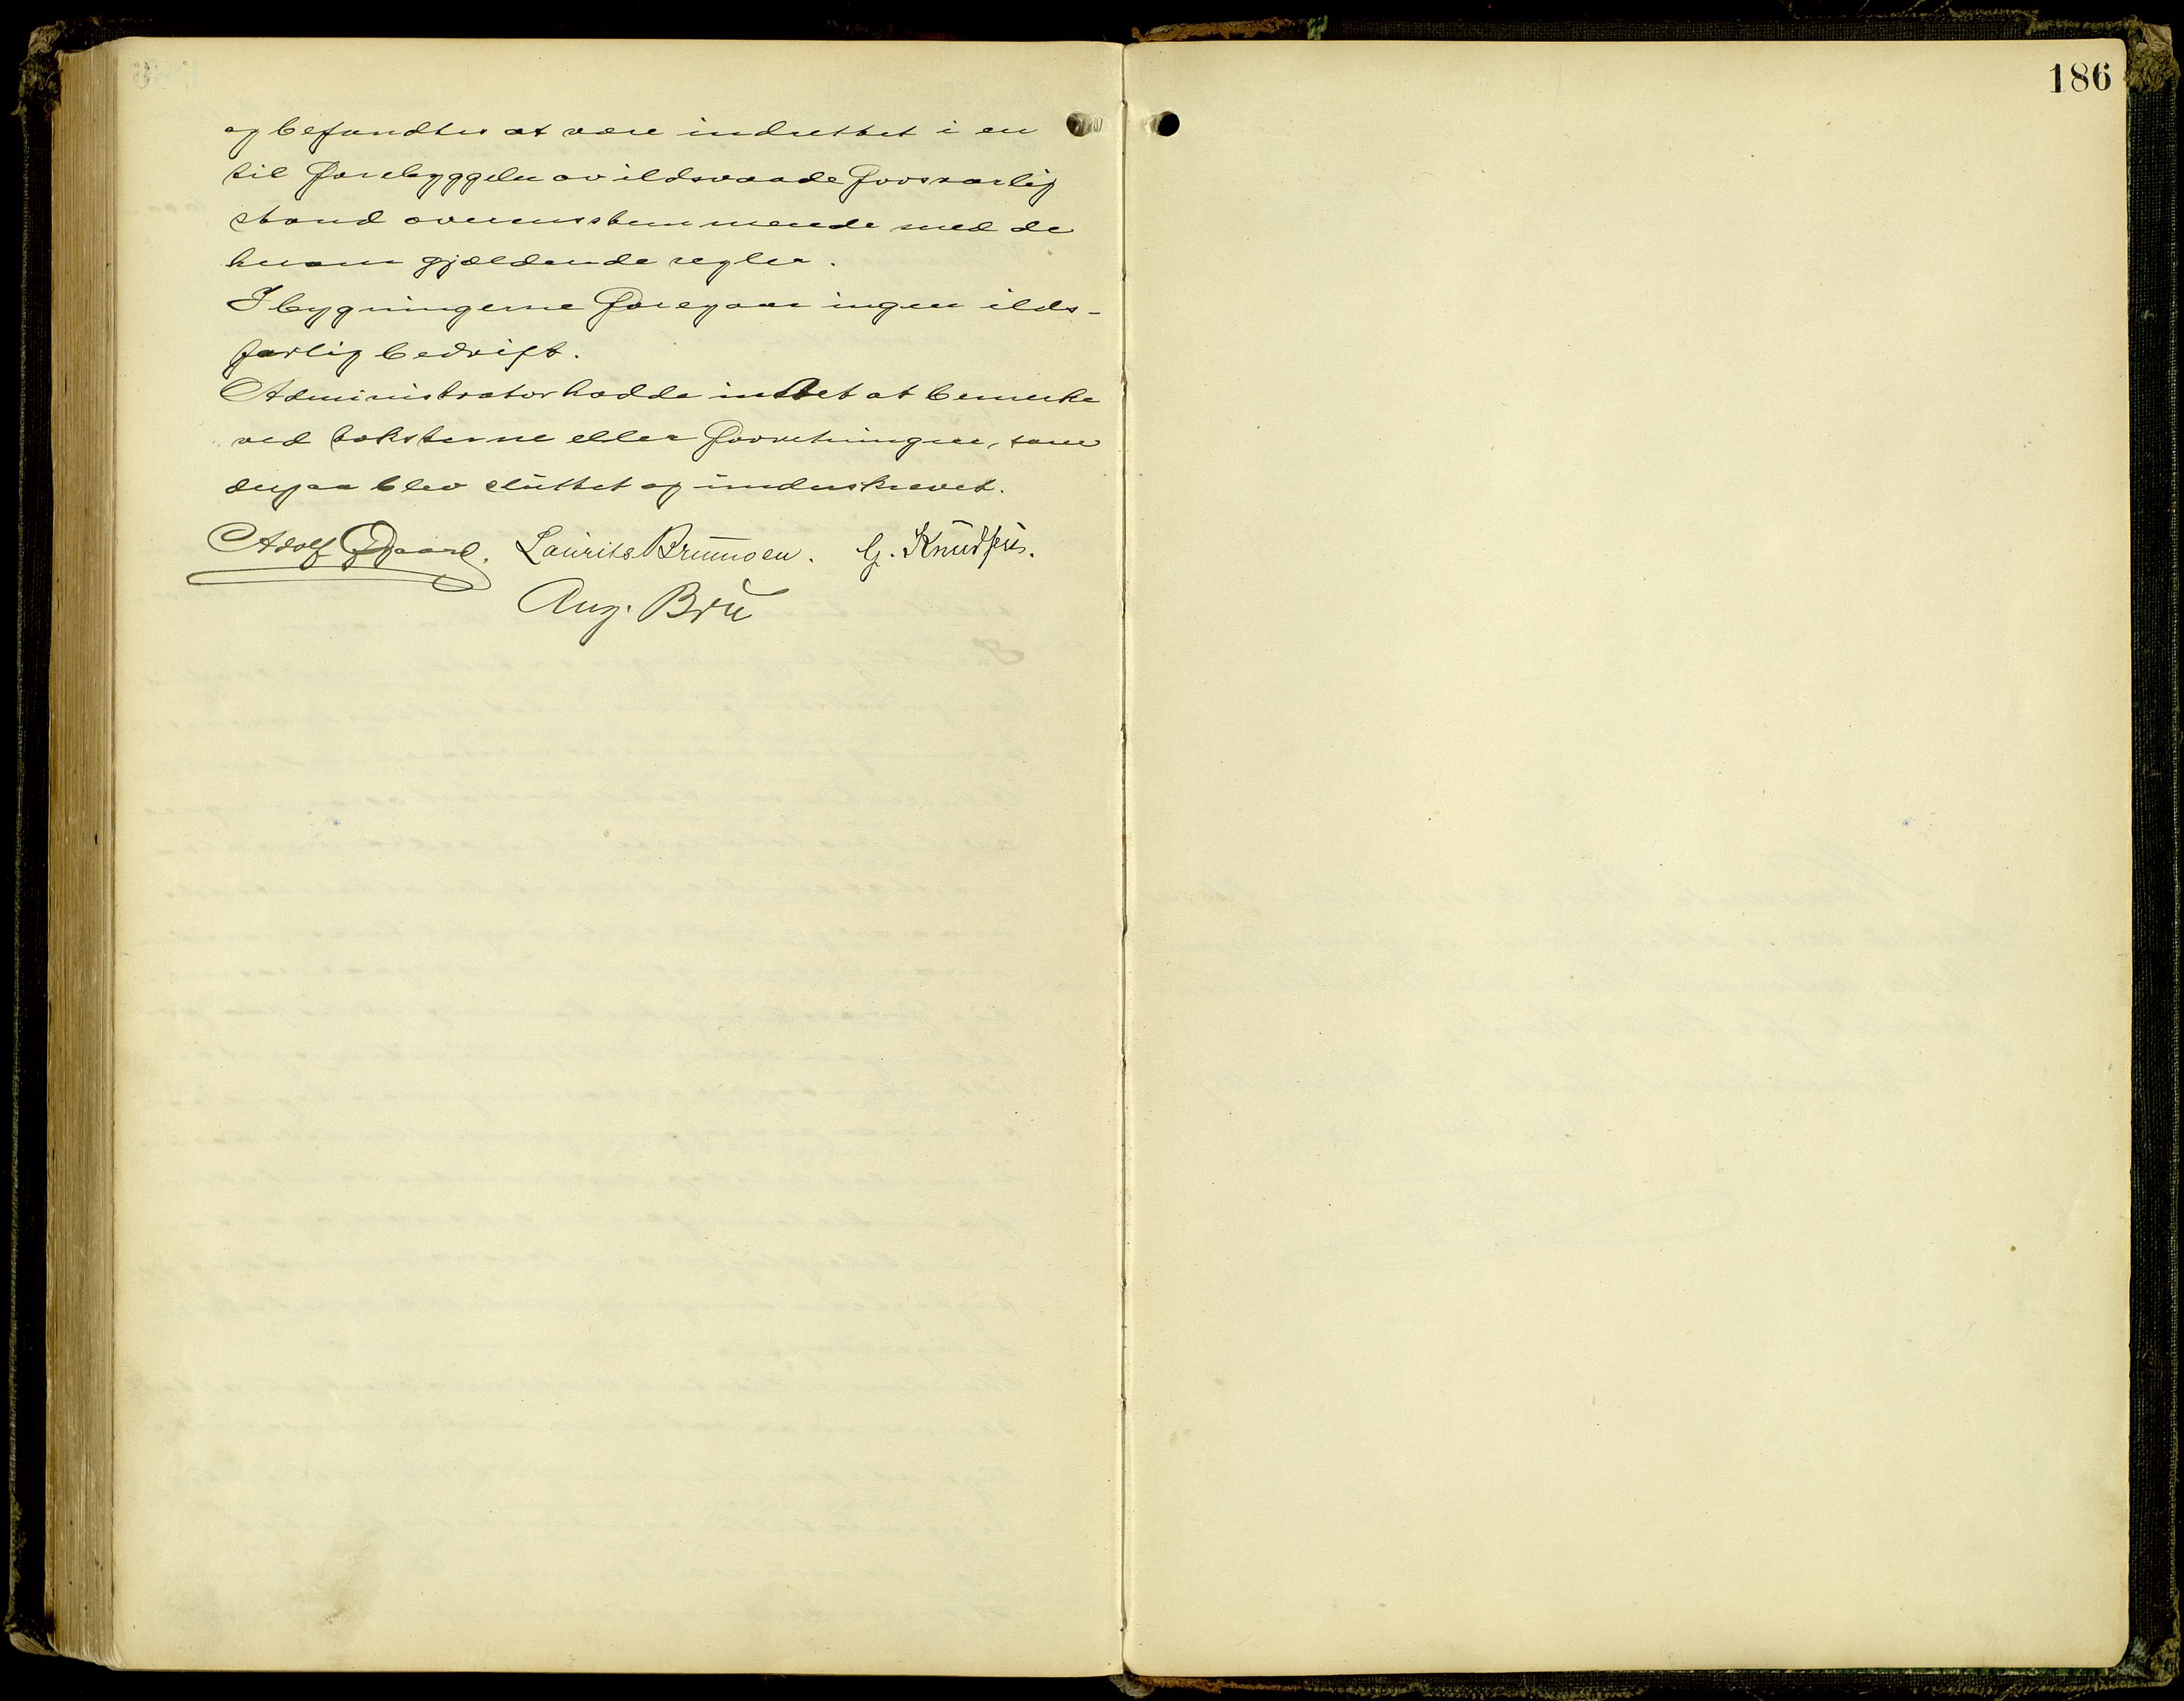 og befandtes at være indrettet i en
til forebyggelse av ildsvaade forsvarlig
stand overensstemmende med de
herom gjældende regler.
I bygningerne foregaar ingen ilds-
farlig bedrift.
Administrator hadde intet at bemerke
ved taksterne eller forretningen, som
derpaa blev sluttet og underskrevet.
Adolf Laurits Bruunsen. G. Knudsen.
Aug. Bru
186